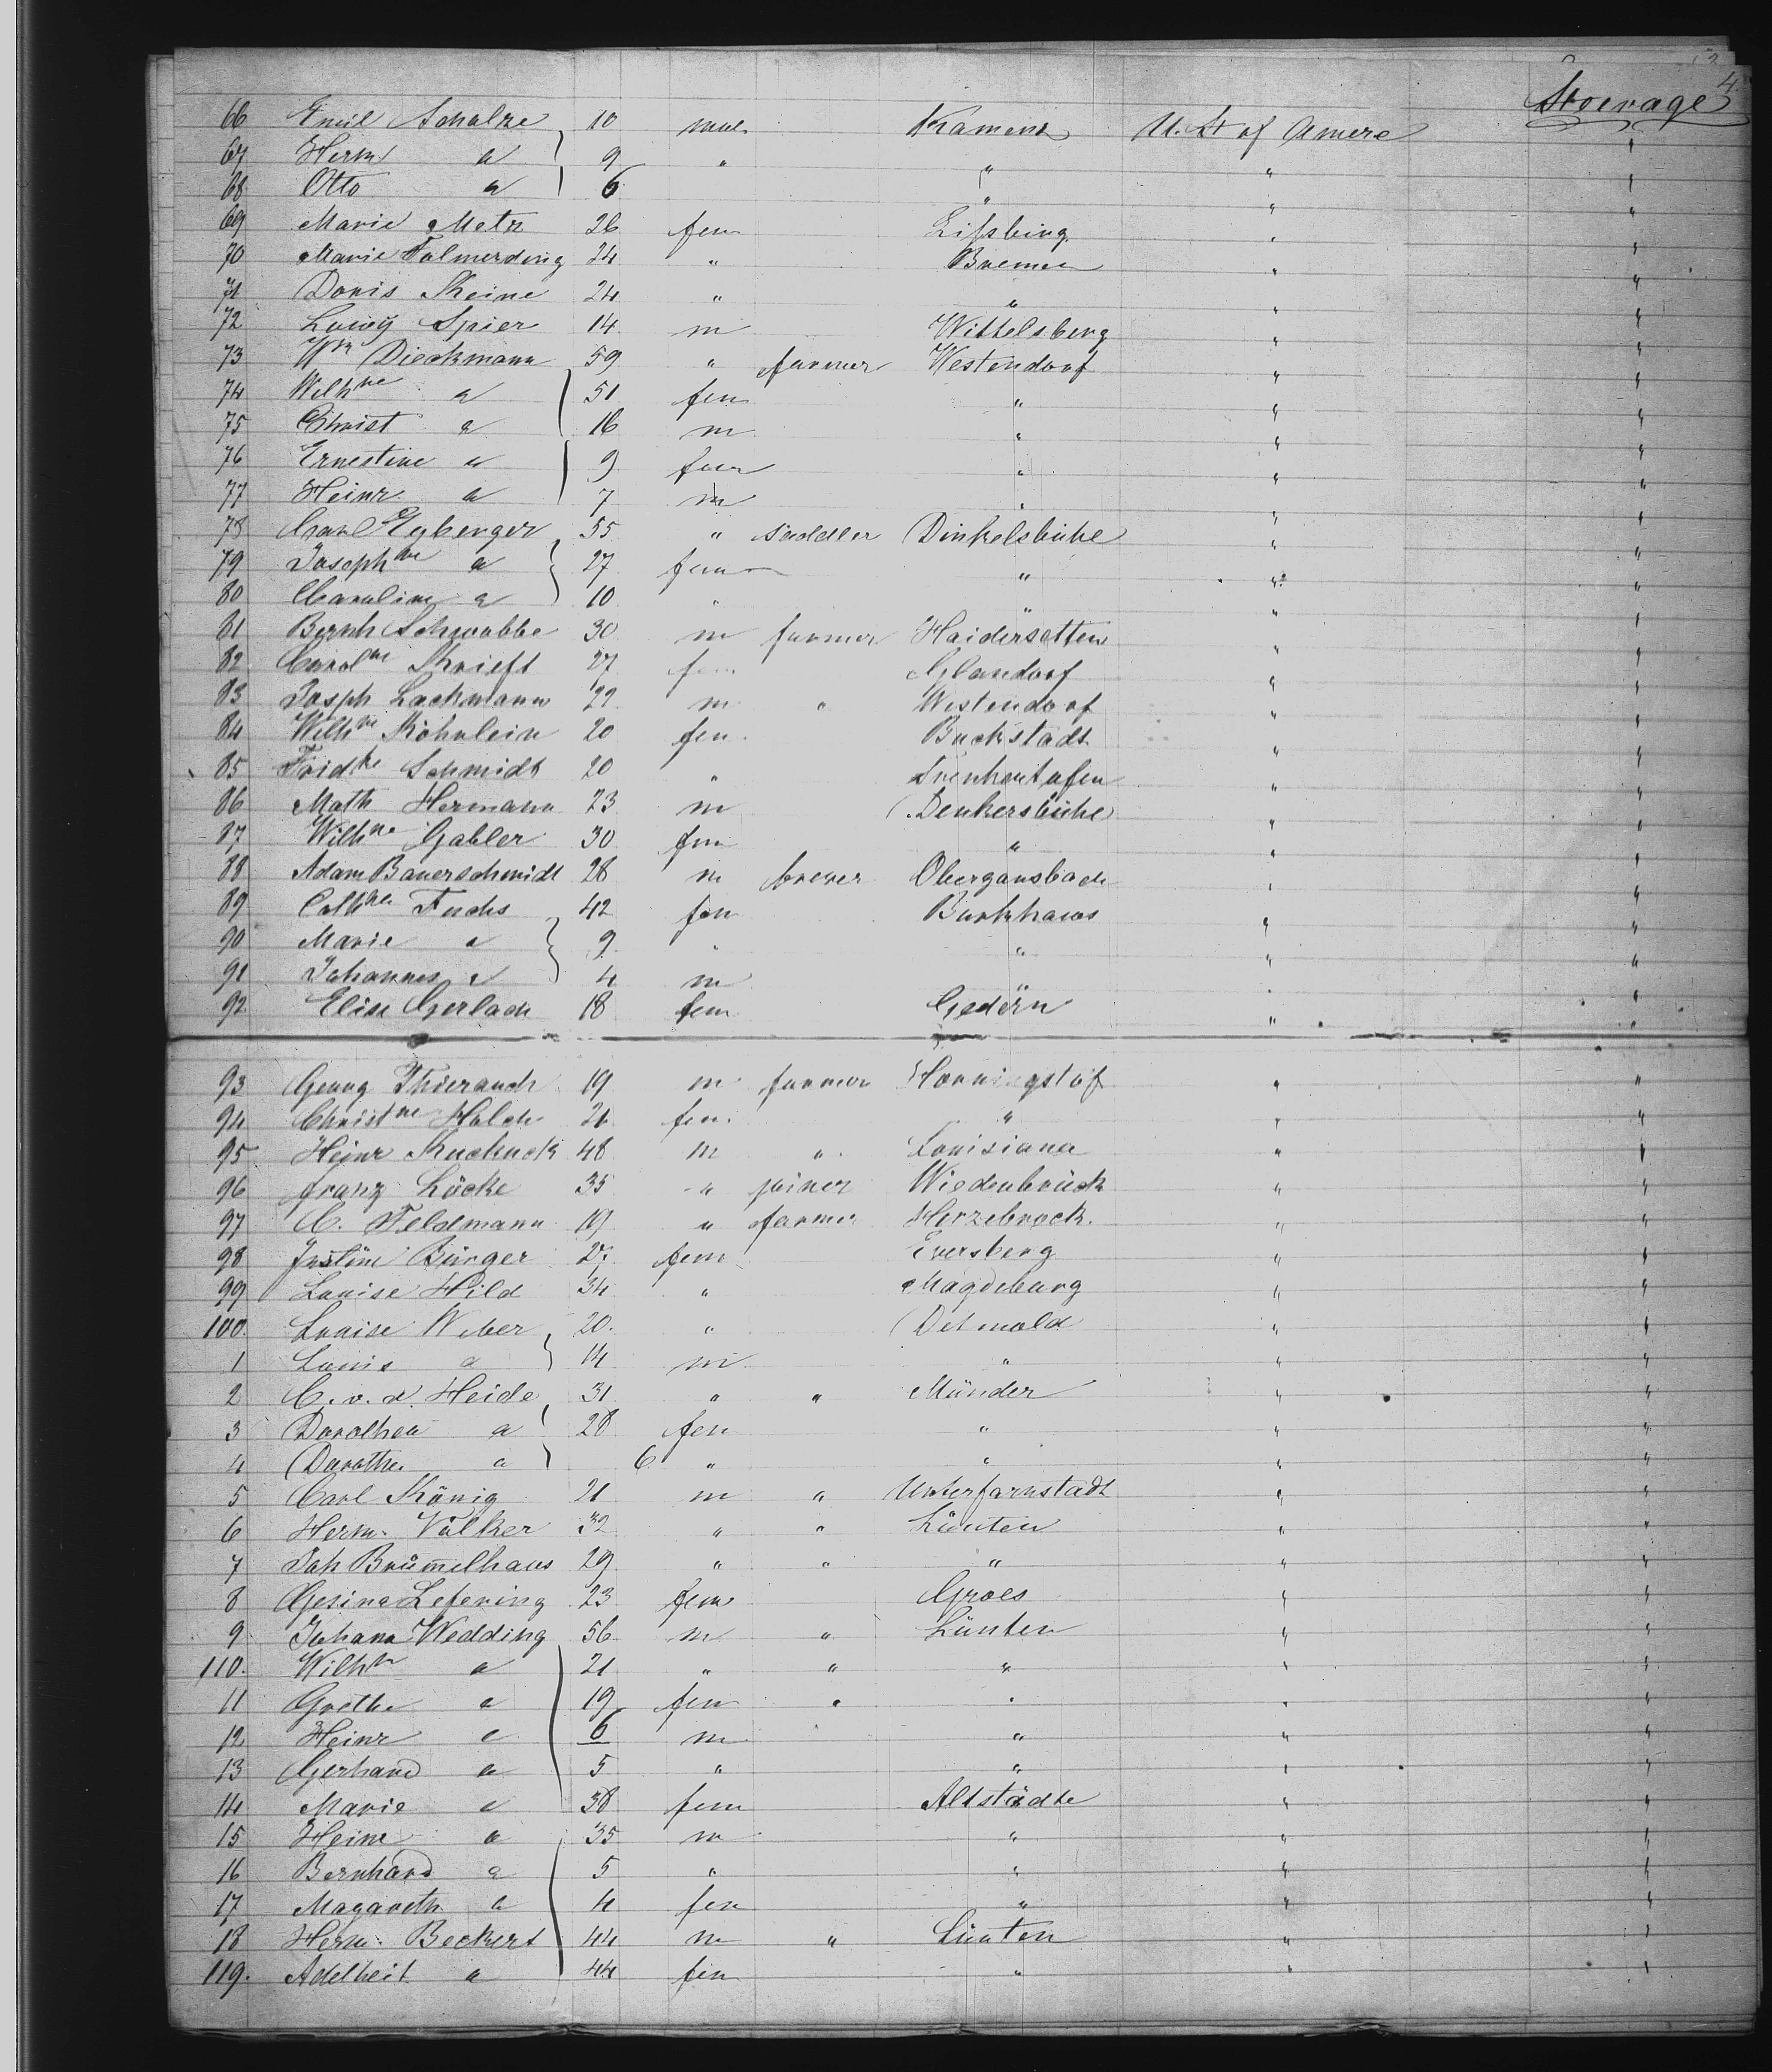 4
Steerage
66 Emil Schulze 10 male Kamenz U. St of Amere "
67 Herm a 9 " " " "
68 Otto a 6 " " "
69 Marie Metz 26 fem " "
70 Marie Folmerding 24 " Bremen " "
71 Doris Meine 24 " " " "
72 Spier 14 m Wittelsberg " "
73 Wm Dieckmann 59 " farmer Westendorf " "
74 Wilhne a 51 fem " " "
75 Christ a 16 m " " "
76 Ernestine a 9 fem " " "
77 Heinr. a 7 m " " "
78 Carl Eyberger 55 " saddler Dinkelsbühe " "
79 Josephne a 27 fem " " "
80 Caroline a 10 " " " "
81 Bernh Schwabbe 30 m farmer " "
82 Carolne 27 fem Glandorf " "
83 Joseph Lackmann 22 m " Westendorf " "
84 Wilhne Köhnlein 20 fem Buckstadt " "
85 Fridke Schmidt 20 " " "
86 Math Hermann 23 m Denkersbühe " "
87 Wilhne Gabler 30 fem " " "
88 Adam Bauerschmidt 28 m brewer Obergansbach " "
89 Cathne Fuchs 42 fem Burkhaus " "
90 Marie a 9 " " " "
91 Johannes a 4 m " " "
92 Elise Gerlach 18 fem Gedern " "
93 Georg Thierauch 19 m farmer " "
94 Christne Holch 21 fem " " "
95 Heinr Kuckuck 48 m " Louisiana " "
96 Franz Löcke 35 " joiner Wiedenbrück " "
97 C. Feldmann 19 " farmer Herzebrock. " "
98 Justine Bürger 27 fem Eversberg " "
99 Louise Hild 34 " Magdeburg " "
100. Louise Weber 20. " Detmold " "
1 Louis a 14 m " " "
2 C. v. d. Heide 31 " " Münder " "
3 Dorothea a 28 fem " " "
4 Dorothe. a 6 " " " "
5 Carl König 21 m " Unterfarnstadt " "
6 Herm. Völker 32 " " Lünten " "
7 Joh Brümmelhaus 29 " " " " "
8 Gesina Lefering 23 fem Groes " "
9 Johann Wedding 56 m " Lünten " "
110. Wilhm a 21 " " " " "
11 Grethe a 19 fem " " " "
12 Heinr a 6 m " " "
13 Gerhard a 5 " " " "
14 Marie a 38 fem Altstädte " "
15 Heinr a 35 m " " "
16 Bernhard a 5 " " " "
17 Magareth a 4 fem " " "
18 Herm. Beckert 44 m " Lünten " "
119. Adelheit a 44 fem " " "